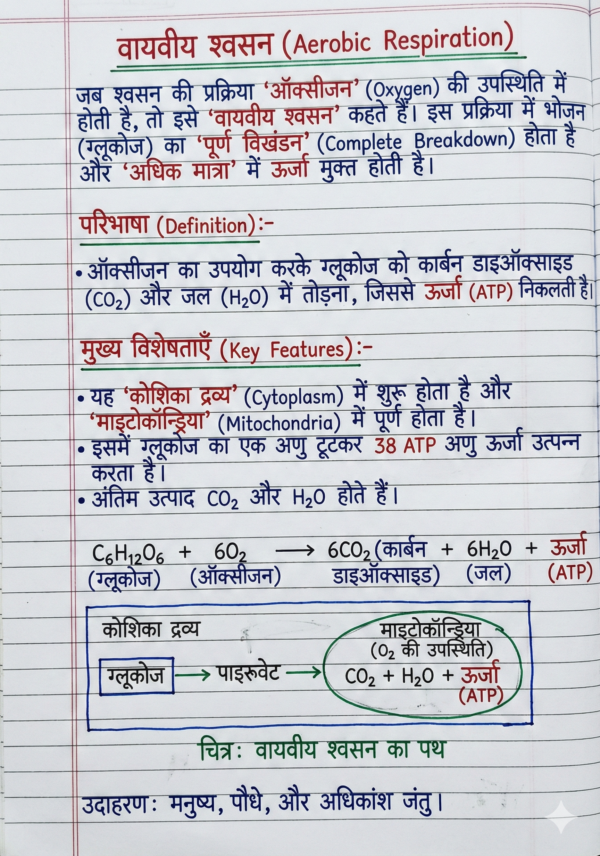 वायवीय श्वसन (Aerobic Respiration)
जब श्वसन की प्रक्रिया 'ऑक्सीजन' (Oxygen) की उपस्थिति में
होती है, तो इसे 'वायवीय श्वसन' कहते हैं। इस प्रक्रिया में भोजन
(ग्लूकोज) का 'पूर्ण विखंडन' (Complete Breakdown) होता है
और 'अधिक मात्रा' में ऊर्जा मुक्त होती है।
परिभाषा (Definition):-
• ऑक्सीजन का उपयोग करके ग्लूकोज को कार्बन डाइऑक्साइड
(CO₂) और जल (H₂O) में तोड़ना, जिससे ऊर्जा (ATP) निकलती है।
मुख्य विशेषताएँ (Key Features):-
• यह 'कोशिका द्रव्य' (Cytoplasm) में शुरू होता है और
'माइटोकॉन्ड्रिया' (Mitochondria) में पूर्ण होता है।
• इसमें ग्लूकोज का एक अणु टूटकर 38 ATP अणु ऊर्जा उत्पन्न
करता है।
• अंतिम उत्पाद CO₂ और H₂O होते हैं।
C₆H₁₂O₆ + 6O₂ ⟶ 6CO₂ (कार्बन + 6H₂O + ऊर्जा
(ग्लूकोज) (ऑक्सीजन) डाइऑक्साइड) (जल) (ATP)
कोशिका द्रव्य
माइटोकॉन्ड्रिया
(O₂ की उपस्थिति)
ग्लूकोज → पाइरूवेट → CO₂ + H₂O + ऊर्जा
(ATP)
चित्र: वायवीय श्वसन का पथ
उदाहरण: मनुष्य, पौधे, और अधिकांश जंतु।